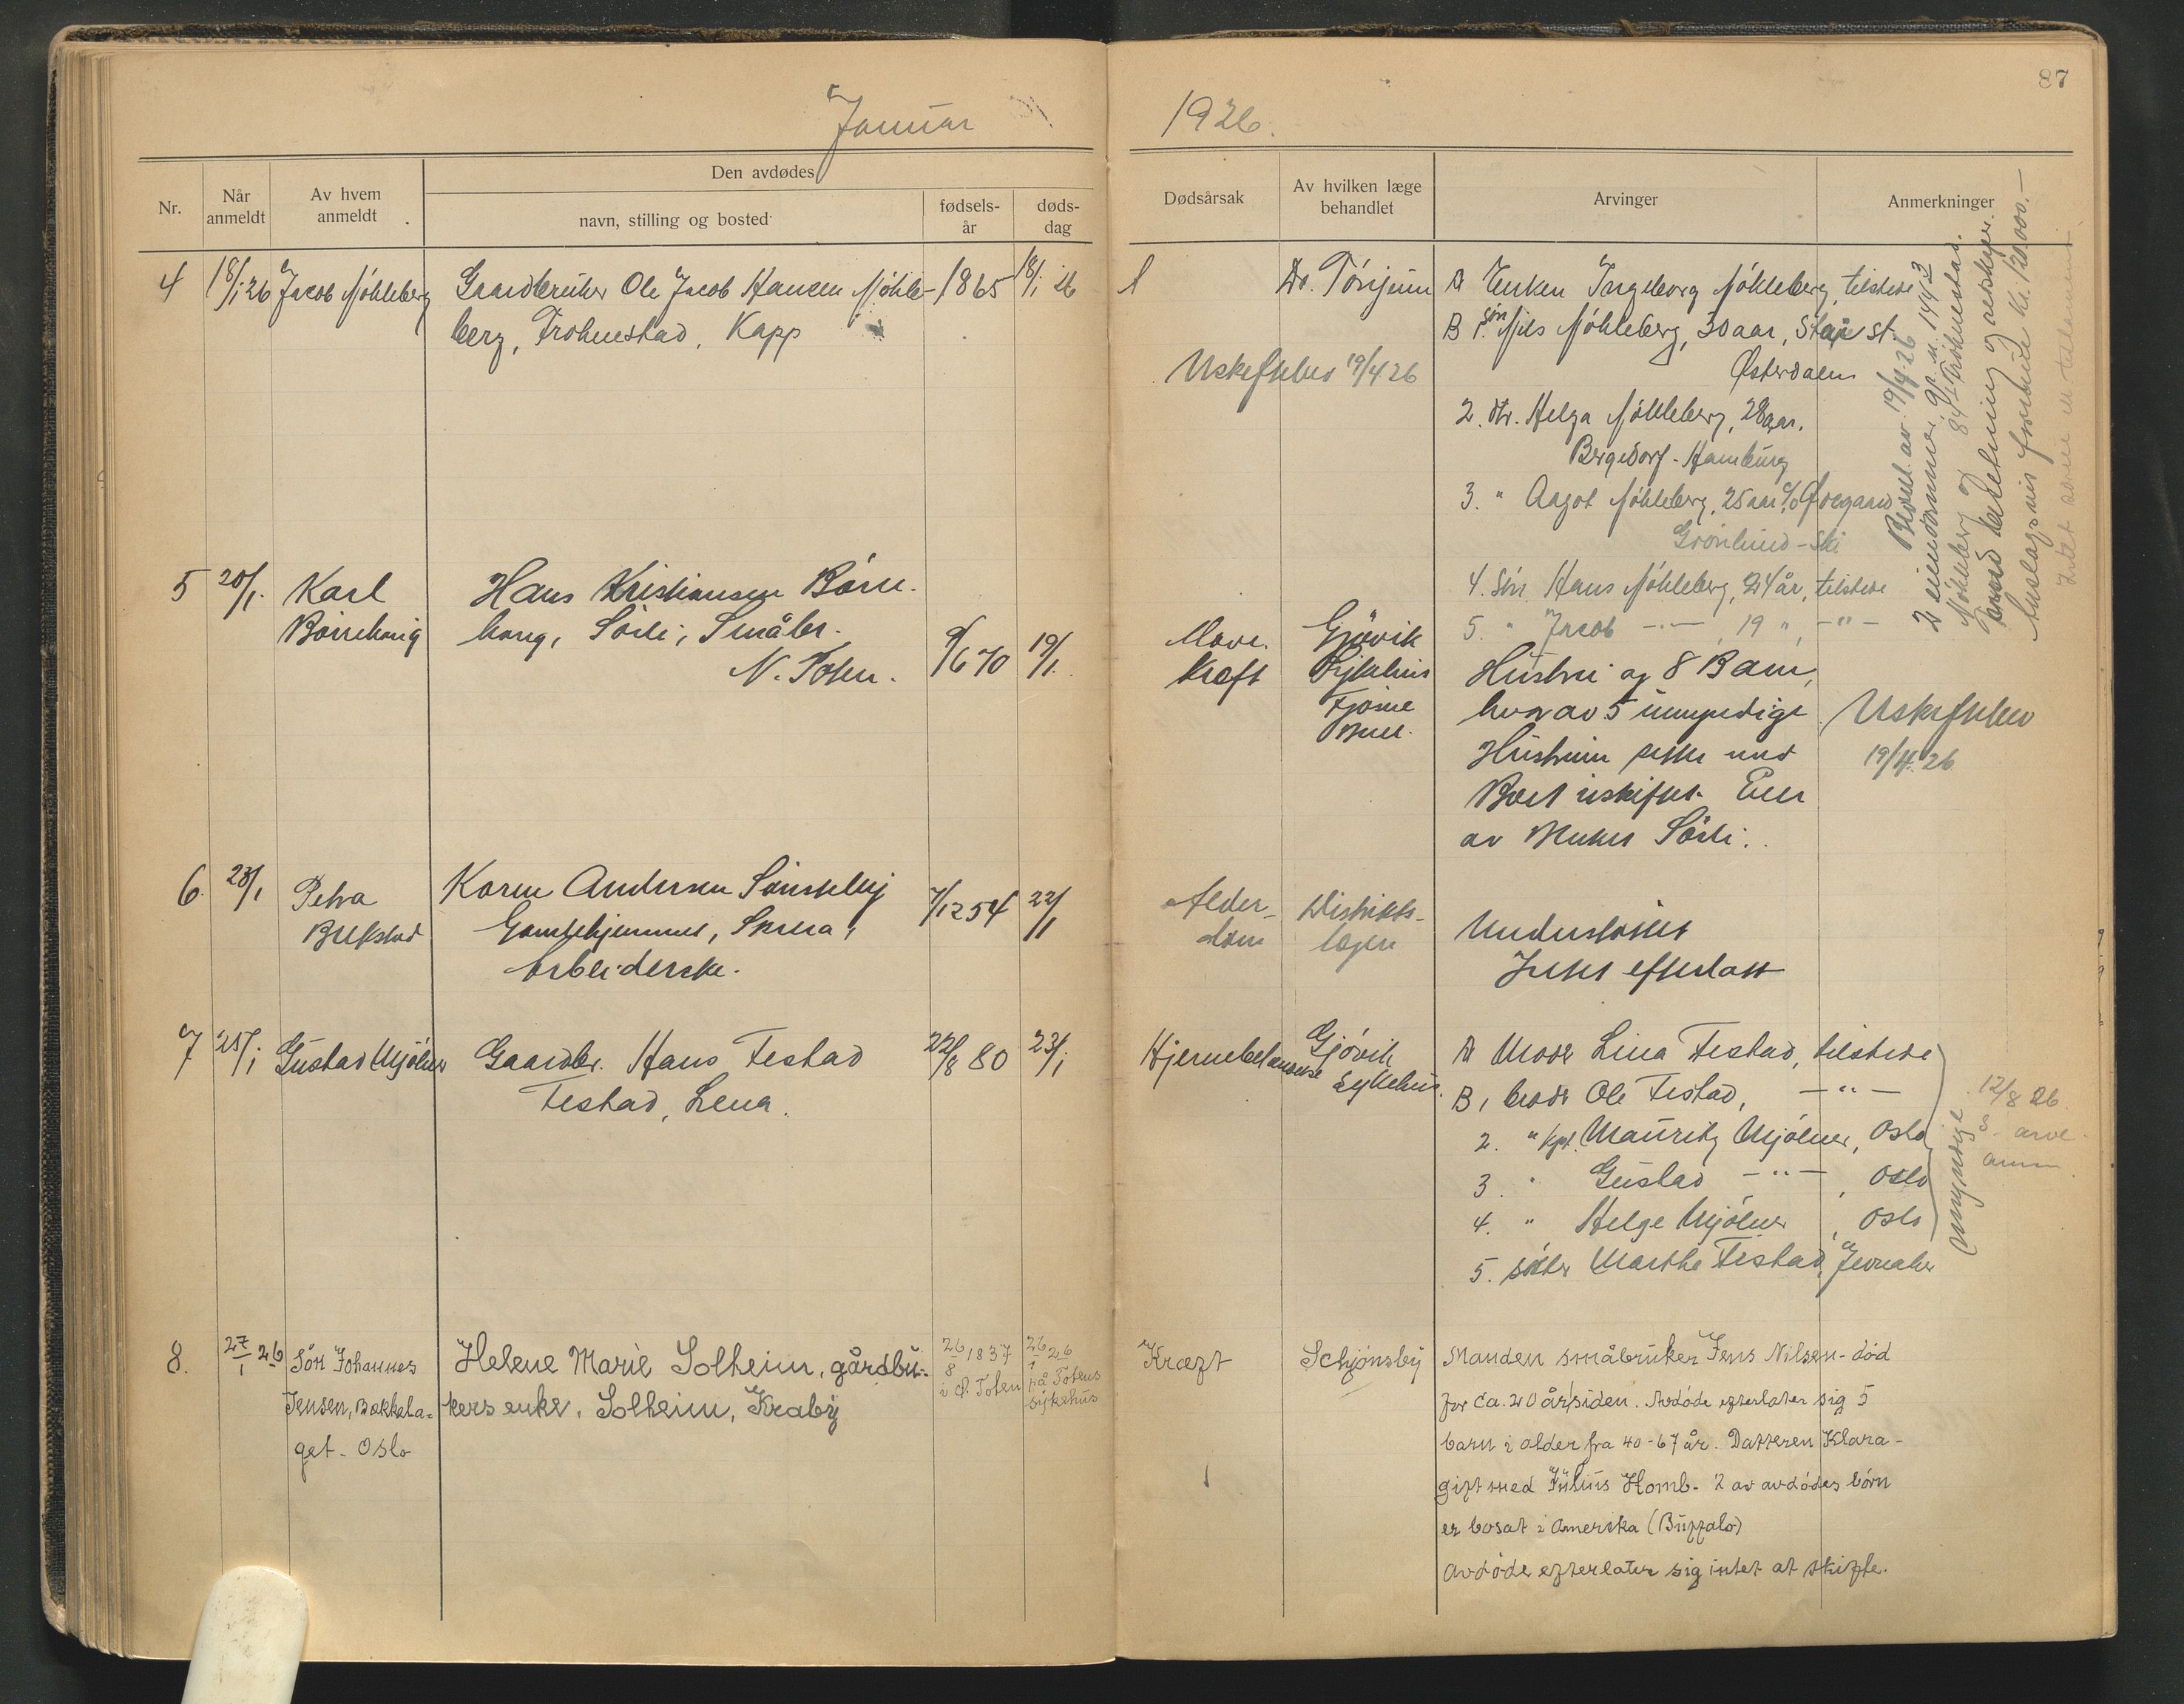 Januar
1926.
87
Nr.
Når anmeldt
Av hvem anmeldt
Den avdødes
navn, stilling og bosted
fødsels-år
døds-dag
Dødsårsak
Av hvilken læge behandlet
Arvinger
Anmerkninger
4 18/1 26 Jacob Møhleberg
Gaardbruker Ole Jacob Hansen Møhle-
berg, Frohnestad, Kapp
1865 18/1 26
Dr. Tönjum
A Enken Ingeborg Møhleberg, tilstede
B 1. Søn Nils Møhleberg, 30 aar, Stai st.
Østerdalen
Uskiftebev 19/4 26
2. dtr. Helga Møhleberg, 28 aar.
Bergedorf - Hamburg
3. " Aagot Møhleberg, 25 aar, c/o
Grønlund - Ski
4. Søn Hans Møhleberg, 24 år, tilstede
5. " Jacob -"- , 19 ", -"-
Bevill. av 19/4-26
2 eiendommer
Møhleberg
5 20/1. Karl
Børrehaug
Hans Kristiansen Børre-
haug, Sörli, Småbr.
N. Toten.
9/6 70 19/1.
Mave.
kræft
Gjøvik
Sykehus
Hustru og 8 Barn,
hvorav 5 umyndige
Hustruen sitter med
Boet uskiftet. Eier
av Sörli.
Uskiftebev
19/4. 26
6. 23/1 Petra
Karen Andersen
Gamlehjemmet, Skreia,
Arbeiderske.
7/12 54 22/1
Alder-
dom
Distrikts-
lægen
Understøttet
Intet efterlatt
7 25/1 Gustad Mjölner
Gaardbr. Hans Festad
Festad, Lena.
22/8 80 23/1
Hjernebetændelse
Gjövik
Sykehus.
A Moder Lina Festad, tilstede
B 1 broder Ole Festad, -"-
2. " kpt. Mauritz Mjölner, Oslo
3. " Gustad -"- , Oslo
4. " Helge Mjölner , Oslo
5. söster Marthe Festad, Jevnaker
myndige
12/8 26
8. 27/1 26 Sön Johannes
Jensen, Bækkela-
get - Oslo
Helene Marie Solheim, gårdbru-
kers enke, Solheim, Kraby
26/8 1837
i Ø. Toten
26/1 26
på Totens
sykehus
Kræft
Schjönsby
Manden småbruker Jens Nilsen - död
for ca. 20 år siden. Avdöde efterlater sig 5
barn i alder fra 40-67 år. Datteren Klara -
gift med Julius Homb - 2 av avdödes börn
er bosat i Amerika (Buffalo)
Avdöde efterlater sig intet at skifte.